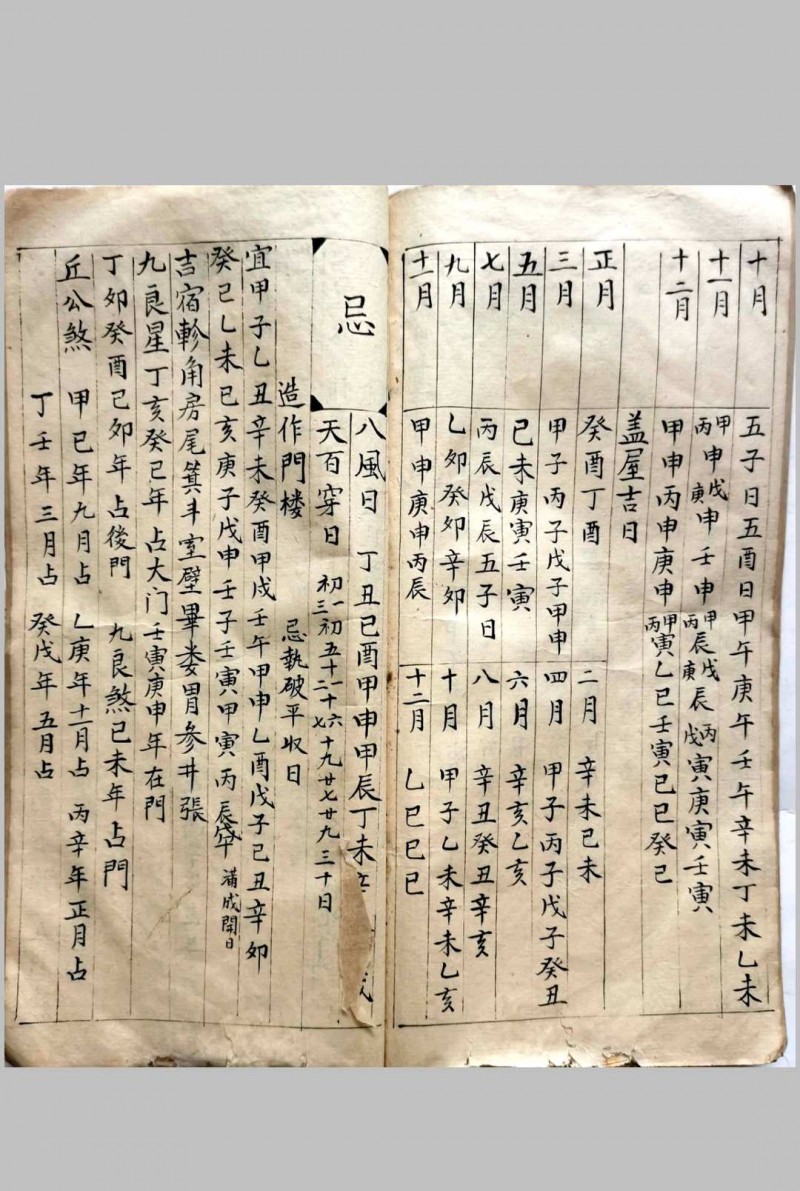 十月 五子日五酉日甲午庚午壬午辛未丁未乙未
十一月 甲丙申戊庚申壬申甲丙辰戊庚辰丙戊寅庚寅壬寅
十二月 甲申丙申庚申甲丙寅乙巳壬寅己巳癸巳
盖屋吉日
正月 癸酉丁酉 二月 辛未己未
三月 甲子丙子戊子甲申 四月 甲子丙子戊子癸丑
五月 己未庚寅壬寅 六月 辛亥乙亥
七月 丙辰戊辰五子日 八月 辛丑癸丑辛亥
九月 乙卯癸卯辛卯 十月 甲子乙未辛未乙亥
十一月 甲申庚申丙辰 十二月 乙巳巳巳
忌
八風日 丁丑己酉甲申甲辰丁未
天百穿日 初一初三初五十一十二十六十七十九廿七廿九三十日
造作門楼 忌執破平收日
宜甲子乙丑辛未癸酉甲戌壬午甲申乙酉戊子己丑辛卯
癸巳乙未己亥庚子戊申壬子壬寅甲寅丙辰 滿成開日
吉宿軫角房尾箕斗室壁畢娄胃參井張
九良星丁亥癸巳年占大门壬寅庚申年在門
丁卯癸酉己卯年占後門 九良煞己未年占門
丘公煞 甲巳年九月占 乙庚年十一月占 丙辛年正月占
丁壬年三月占 癸戊年五月占